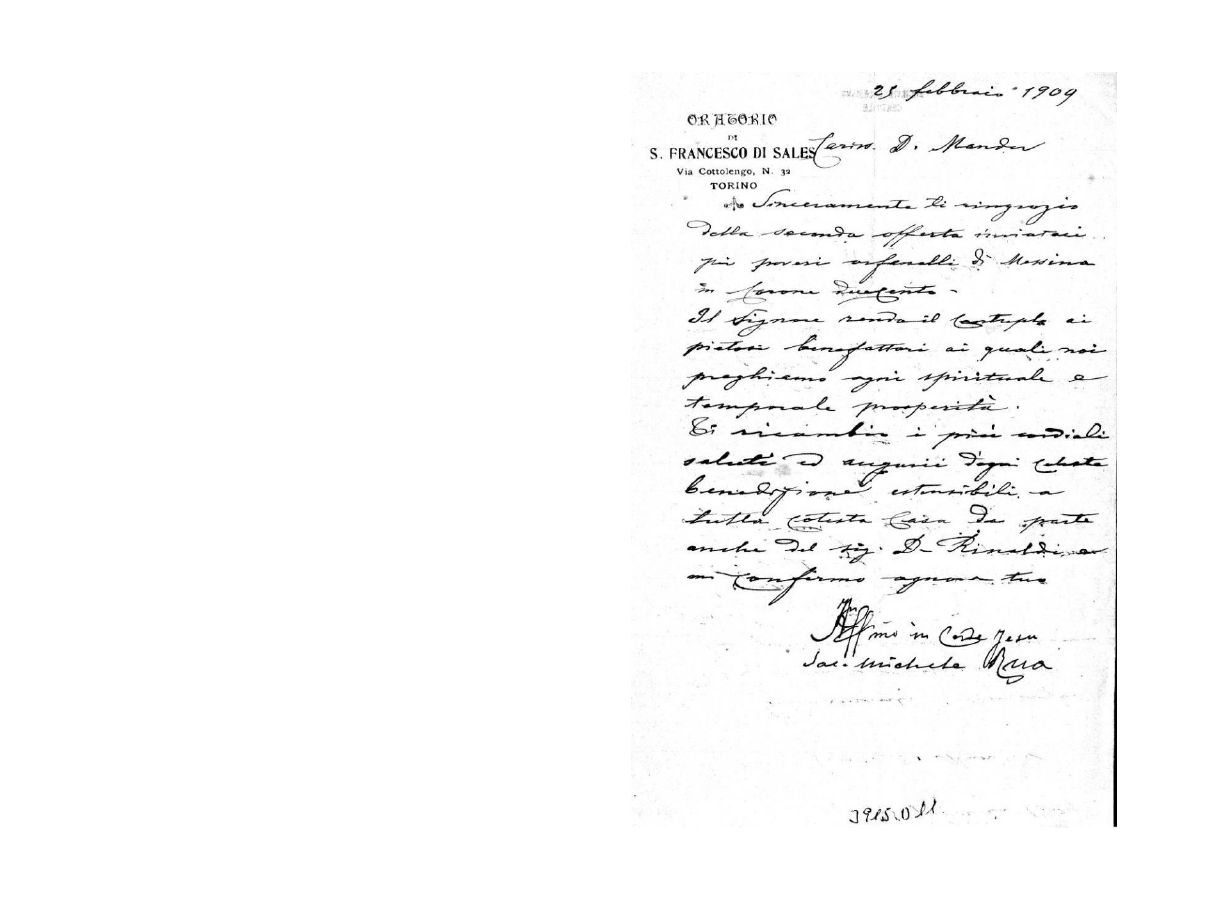 25 febbraio 1909
ORATORIO
DI
S. FRANCESCO DI SALES
Via Cottolengo, N. 32
TORINO
Cariss. D. Mander
Sinceramente ti ringrazio
della seconda offerta inviataci
pei poveri orfanelli di Messina
in Corone duecento -
Il Signore renda il Centuplo ai
pietosi benefattori ai quali noi
preghiamo ogni spirituale e
temporale prosperità.
Ti ricambio i più cordiali
saluti ed augurii d'ogni celeste
benedizione estensibili a
tutta cotesta Casa da parte
anche del sig. D. Rinaldi, e
mi confermo ognora tuo
In
Affmo in Corde Jesu
Sac. Michele Rua